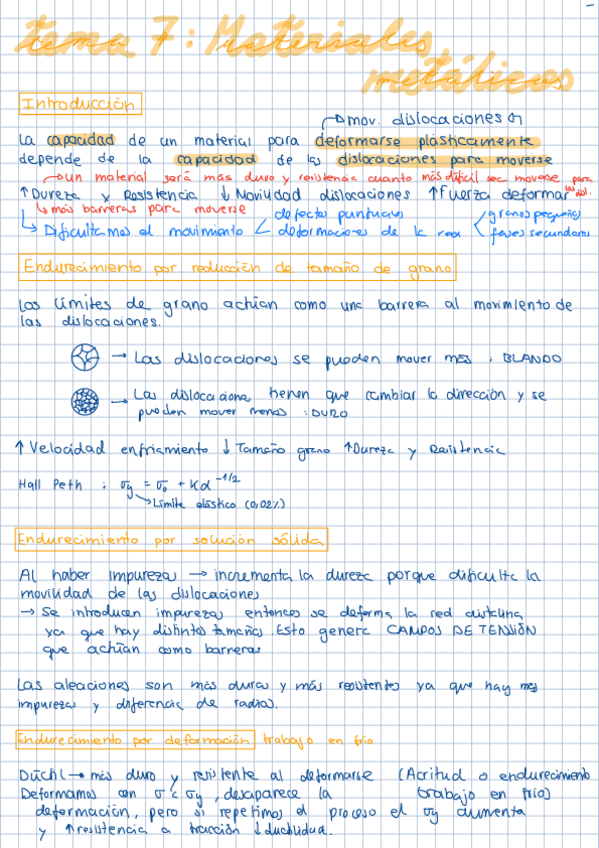 tema 7: Materiales
metálicos
Introducción
→ mov. dislocaciones
La capacidad de un material para deformarse plásticamente
depende de la capacidad de las dislocaciones para moverse
→ un material será más duro y resistencia cuanto más difícil sea moverse para las disl.
↑ Dureza y Resistencia ↓ Movilidad dislocaciones ↑ fuerza deformar
↳ más barreras para moverse
defectos puntuales
granos pequeños
↳ Dificultamos el movimiento
deformaciones de la red
fases secundarias
Endurecimiento por reducción de tamaño de grano
Los límites de grano actúan como una barrera al movimiento de
las dislocaciones.
→ Las dislocaciones se pueden mover más : BLANDO
→ Las dislocaciones tienen que cambiar la dirección y se
pueden mover menos : DURO
↑ Velocidad enfriamiento ↓ Tamaño grano ↑ Dureza y Resistencia
Hall Peth : σy = σ₀ + Kd^-1/2
→ Límite elástico (0,02%)
Endurecimiento por solución sólida
Al haber impurezas → incrementa la dureza porque dificulta la
movilidad de las dislocaciones
→ Se introducen impurezas entonces se deforma la red cristalina
ya que hay distintos tamaños. Esto genera CAMPOS DE TENSIÓN
que actúan como barreras
Las aleaciones son más duras y más resistentes ya que hay más
impurezas y diferencia de radios.
Endurecimiento por deformación trabajo en frio
Dúctil → más duro y resistente al deformarse (Acritud o endurecimiento
Deformamos con σ < σy, desaparece la trabajo en frio)
deformación, pero si repetimos el proceso el σy aumenta
y ↑ resistencia a tracción ↓ ductilidad.